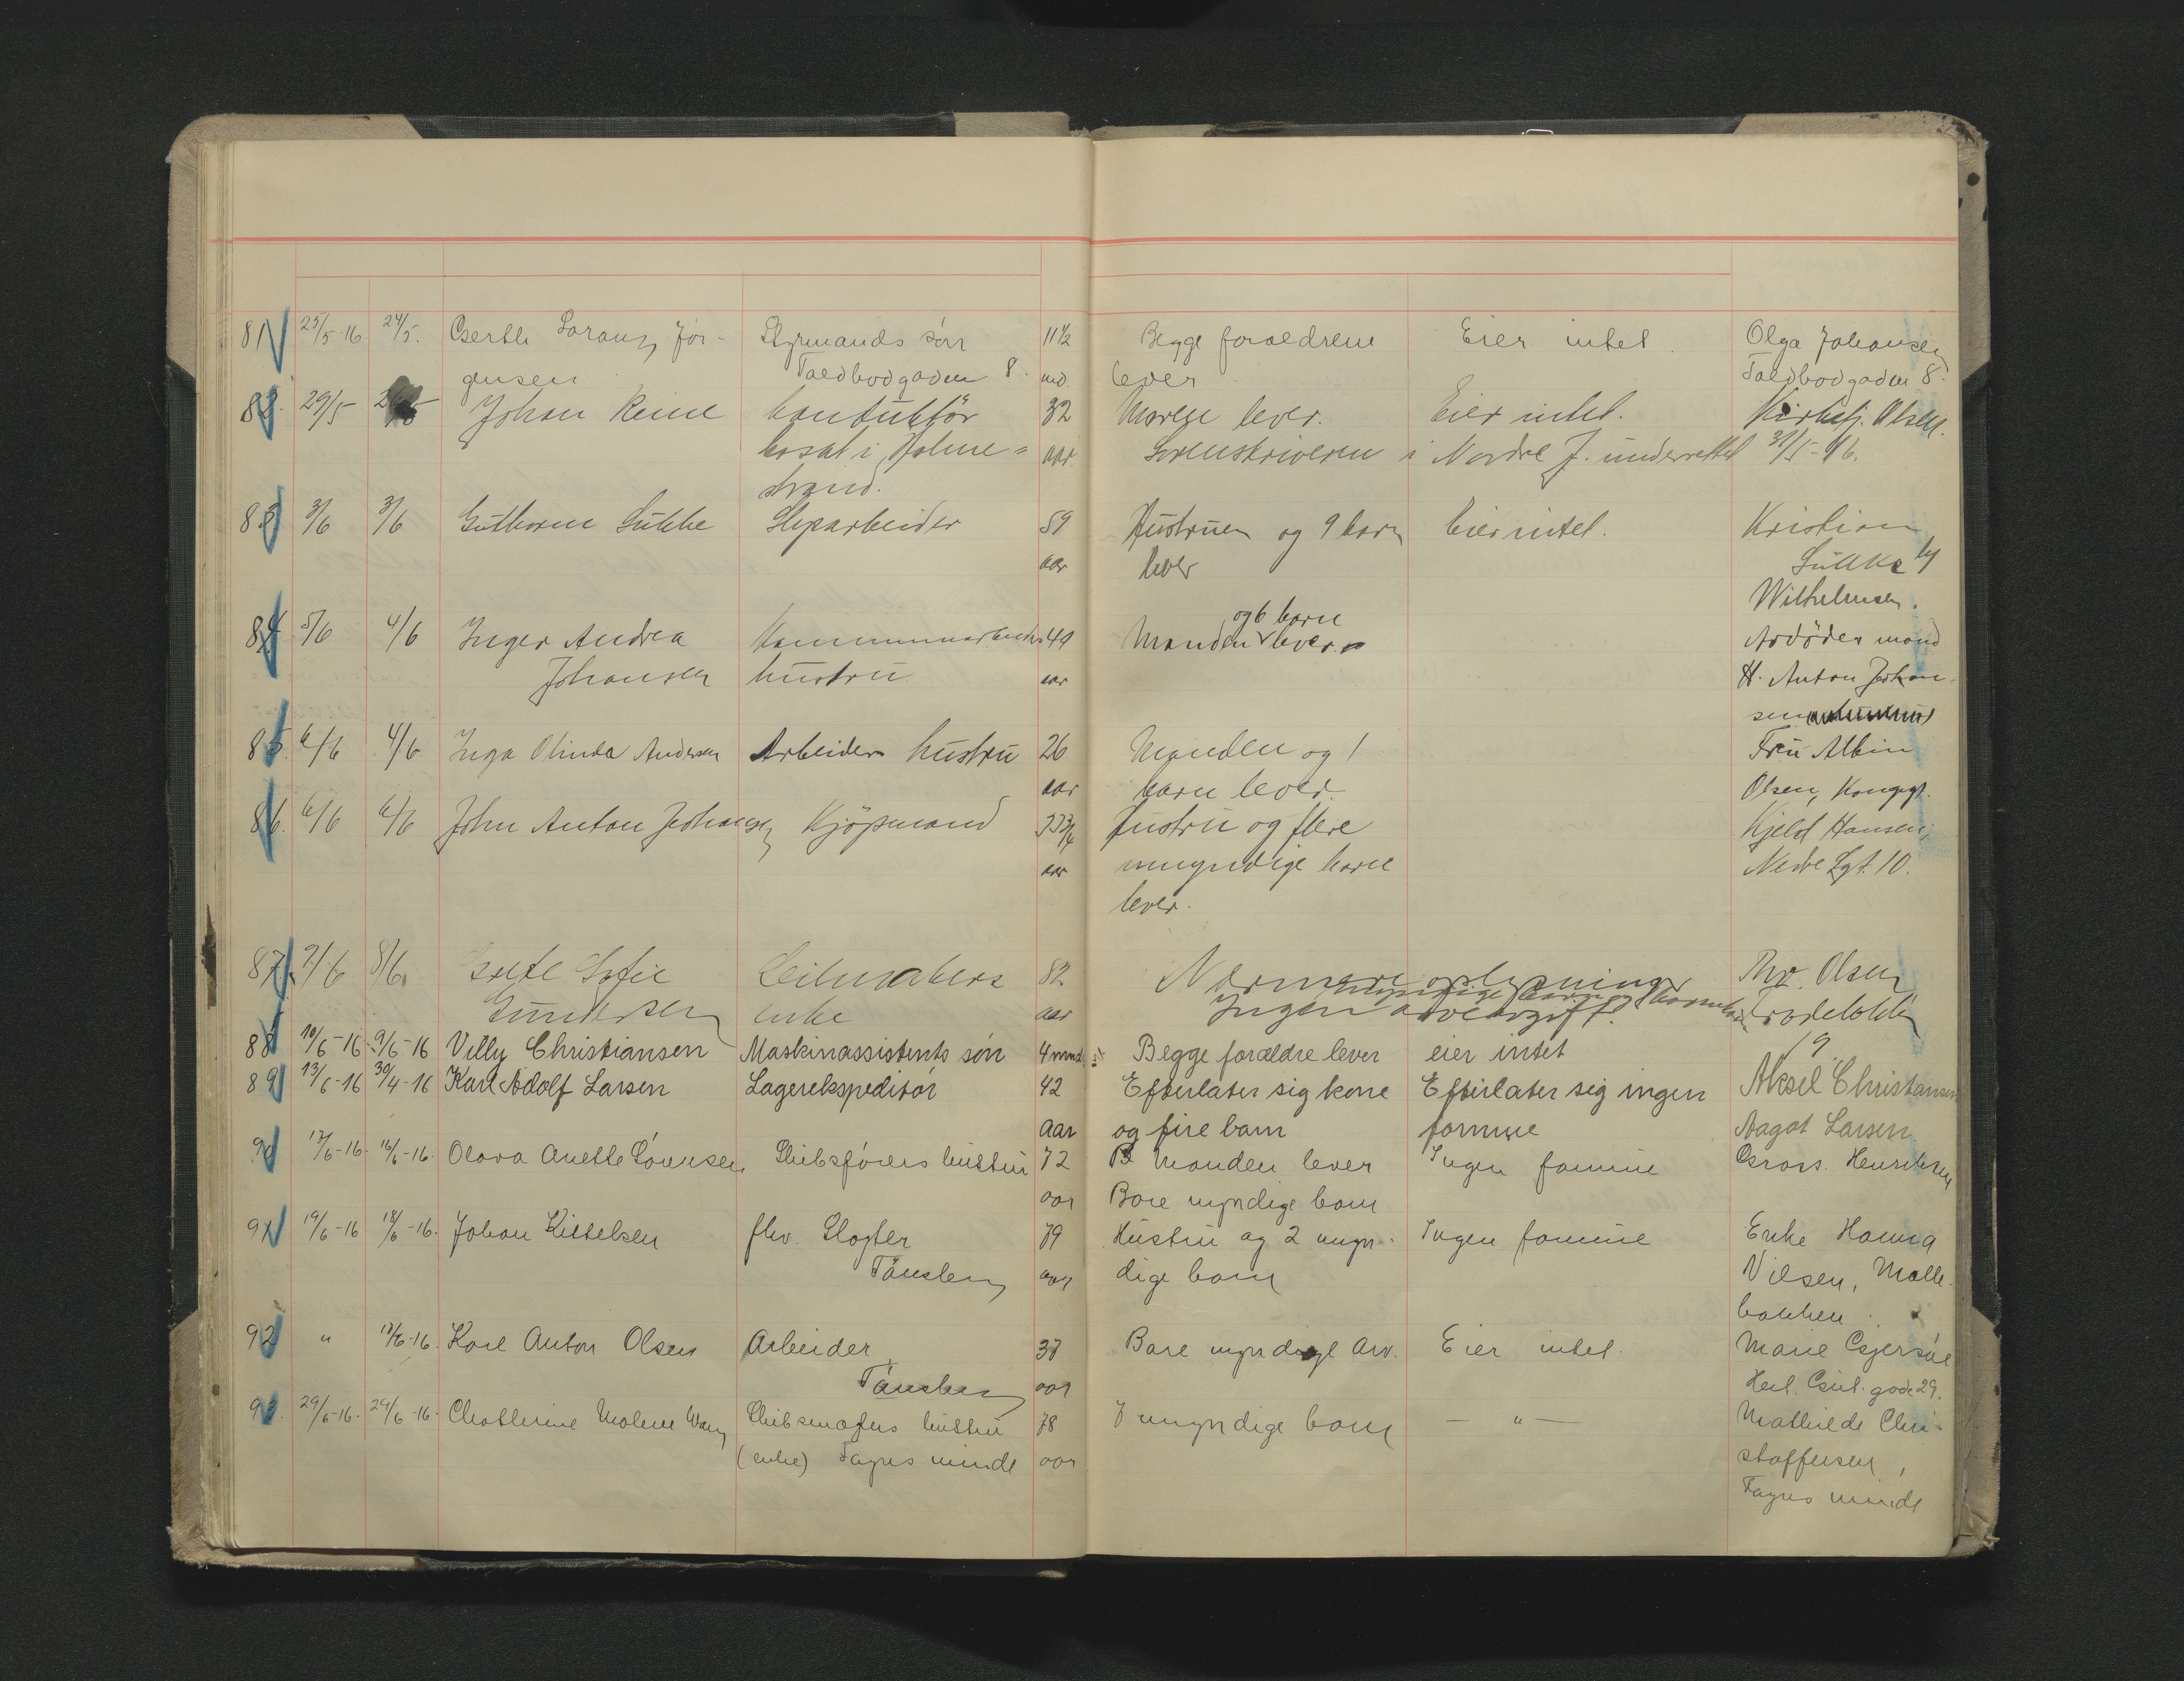 81 25/5-16. 24/5. Gerth Lorang Jör- Styrmands sön 11½ Begge foraeldrene Eier intet. Olga Johansen
gensen Toldbodgaden 8. md. lever Toldbodgaden 8.
82. 29/5 Johan Reine konduktör 32 Moren lever. Eier intet. Kirketj. Olsen.
bosat i Holme= aar. Sorenskriveren i Nordre J. underrettet 31/5-16.
strand.
83 3/6 3/6 Guthorm Lükke Sliparbeider 59 Hustruen og 9 barn Eier intet. Kristian
aar lever Lükke
Wilhelmsen.
og 6 barn
84 5/6 4/6 Inger Andrea 49 Manden lever. Avdödes mand
Johansen hustru aar H. Anton Johan-
sen
85. 6/6 4/6 Inga Olinda Andersen Arbeiders hustru 26 Manden og 1 Fru Albin
aar barn lever. Olsen, Kongsgt.
86. 6/6 6/6 John Anton Johansen Kjöpmand 33¾ Hustru og flere Kjeld Hansen,
aar umyndige barn Nedre Lgt. 10.
lever.
87. 9/6 8/6. Grete Sofie Seilmakers 82 Nærmere oplysninger Thv. Olsen
Gundersen enke aar Ingen arveavgift. Trodelökken
88 10/6-16 9/6-16 Villy Christiansen Maskinassistents sön 4 mnd. Begge forældre lever eier intet 19
89 13/6-16 30/4-16 Karl Adolf Larsen Lagerekspeditör 42 Efterlater sig kone Efterlater sig ingen Aksel Christiansen
aar og fire barn formue Aagot Larsen
90 17/6-16. 16/6-16. Olava Anette Laursen Skibsförers hustru 72 Manden lever Ingen formue Gross. Henriksen
aar Bare myndige barn
91 19/6-16 18/6-16. Johan Kittelsen fhv. Slagter 79 Hustru og 2 myn- Ingen formue Enke Hanna
Tönsberg aar dige barn Nilsen, Mölle-
bakken
92 " 17/6-16. Karl Anton Olsen Arbeider 37 Bare myndige arv. Eier intet. Marie Gjersöe
Tönsberg aar gade 29.
93. 29/6-16. 29/6-16. Chatherine Malene Wang Skibsmæglers hustru 78 7 myndige barn — " — Mathilde Chri-
(enke) Fagnes minde aar stoffersen,
Fagnes minde